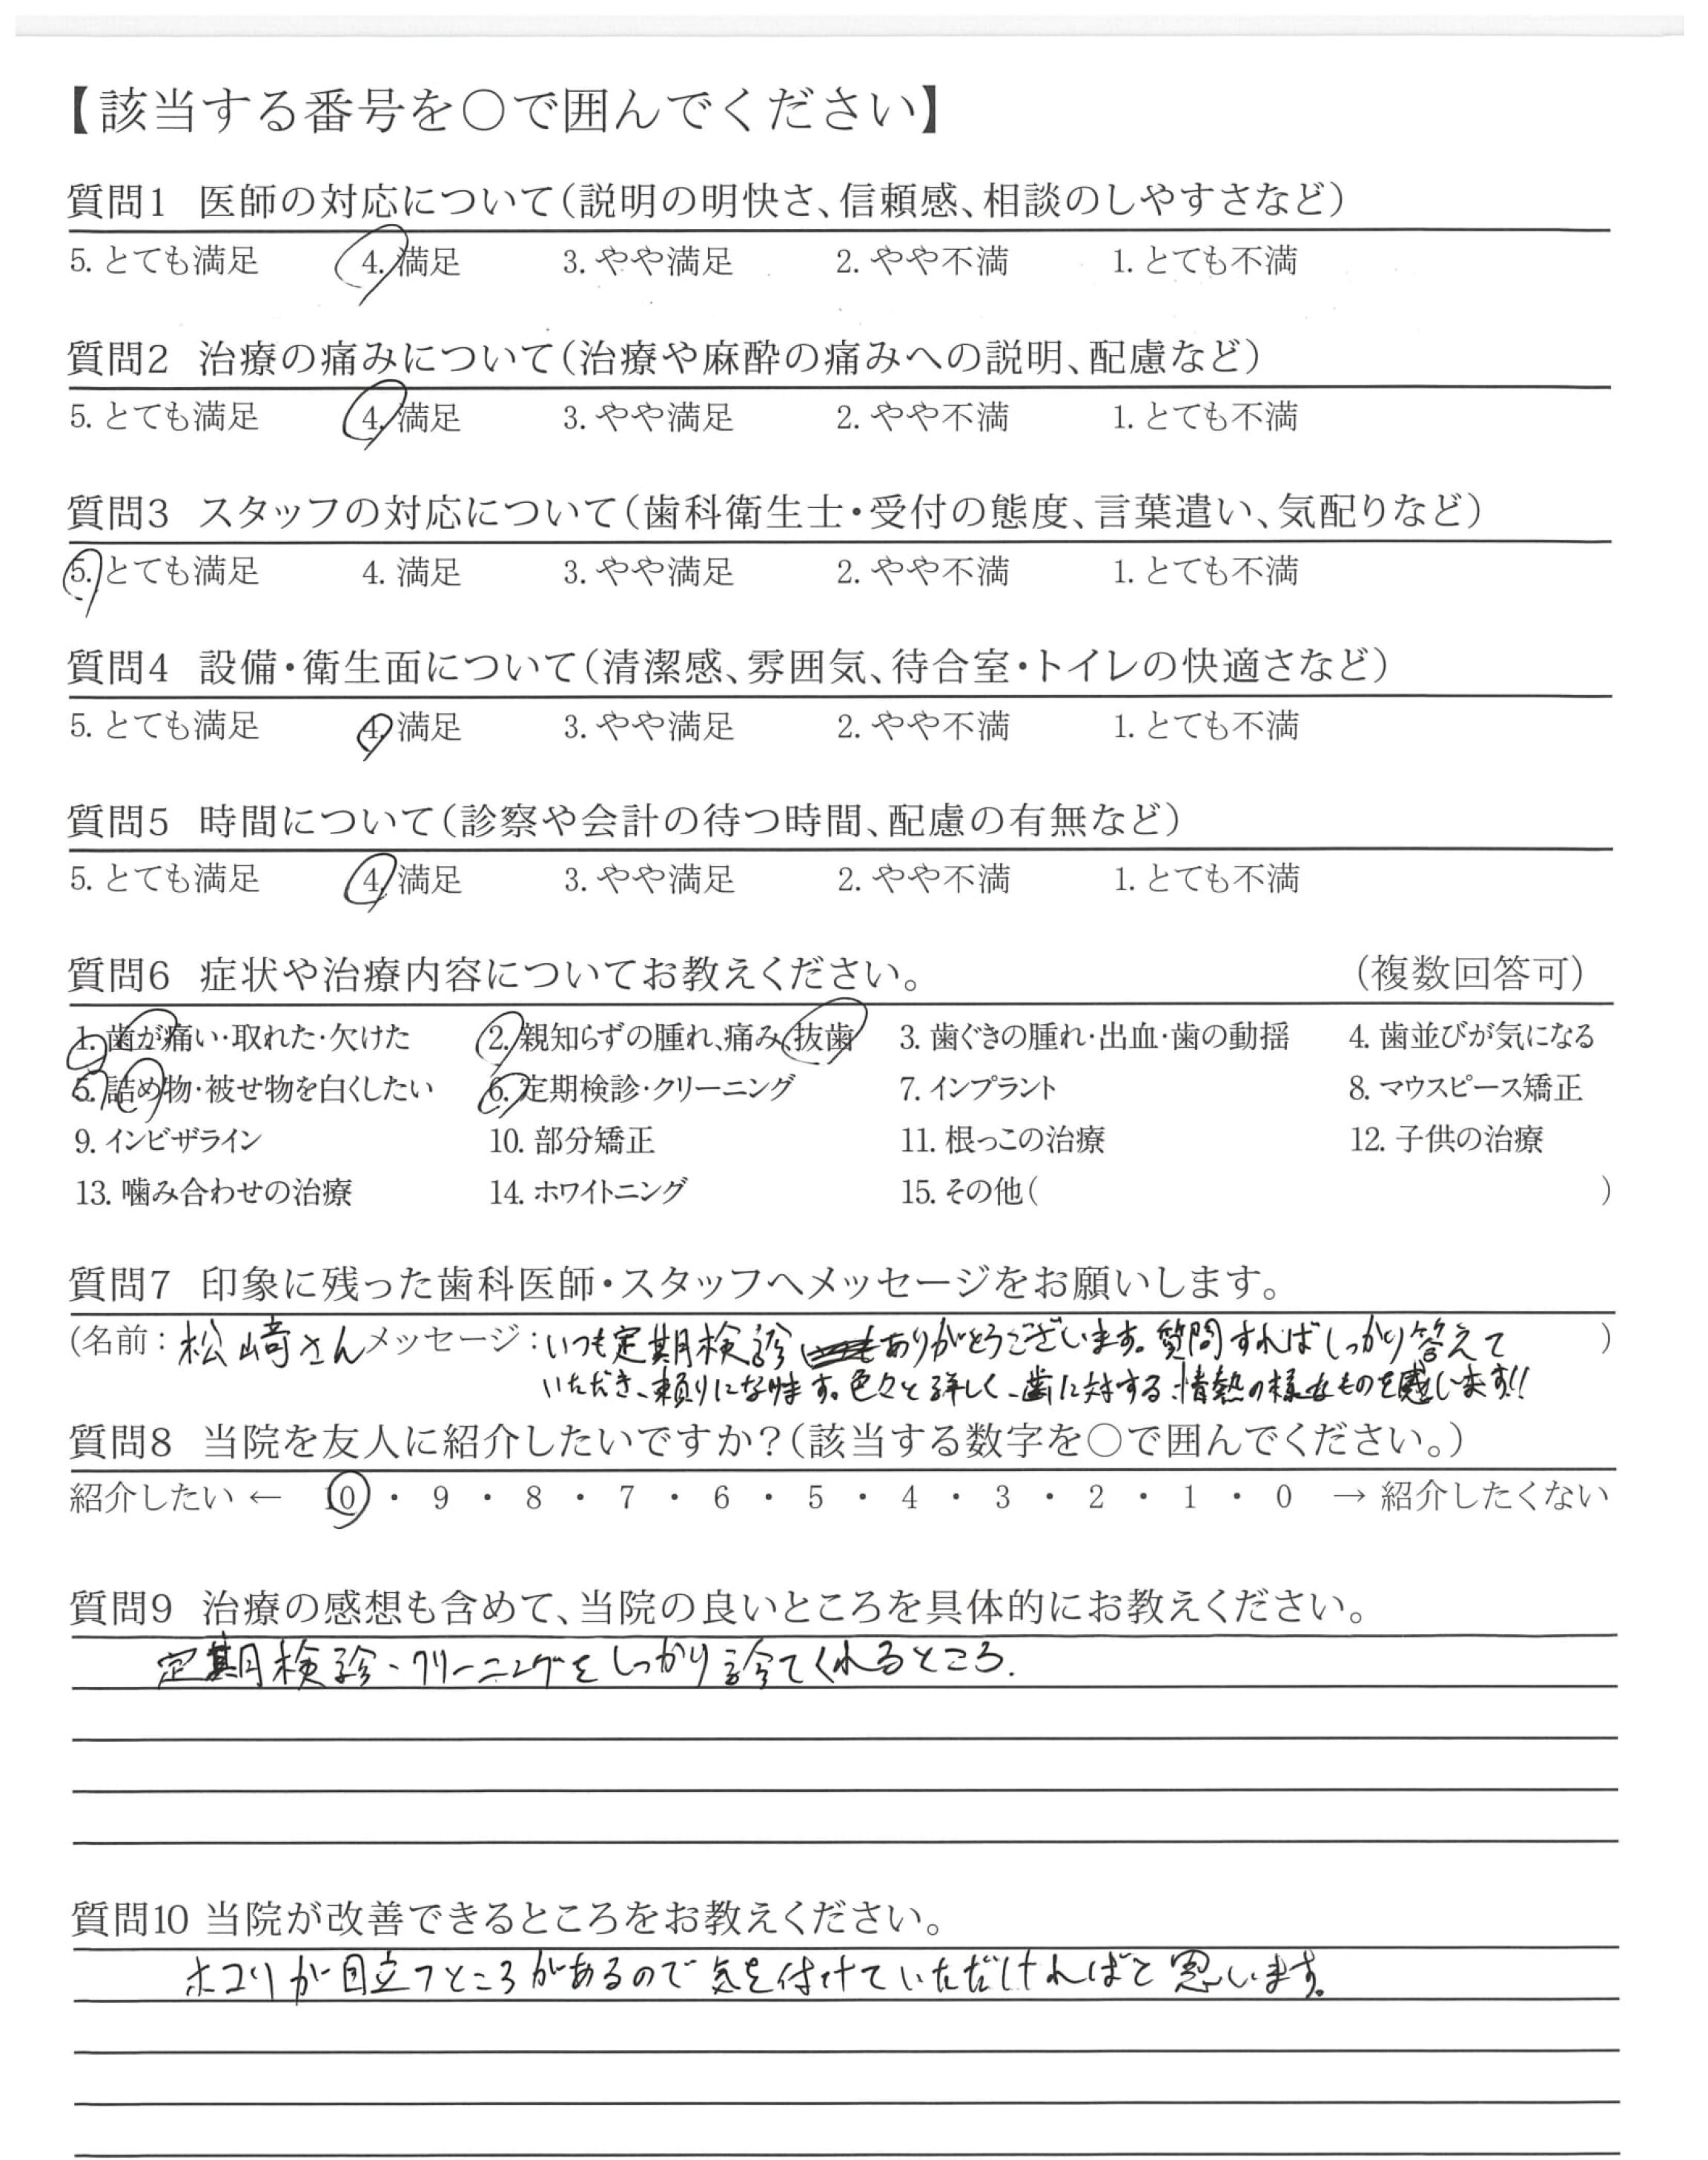 【該当する番号を○で囲んでください】
質問1 医師の対応について(説明の明快さ、信頼感、相談のしやすさなど)
5. とても満足 4. 満足 3. やや満足 2. やや不満 1. とても不満
質問2 治療の痛みについて(治療や麻酔の痛みへの説明、配慮など)
5. とても満足 4. 満足 3. やや満足 2. やや不満 1. とても不満
質問3 スタッフの対応について(歯科衛生士・受付の態度、言葉遣い、気配りなど)
5. とても満足 4. 満足 3. やや満足 2. やや不満 1. とても不満
質問4 設備・衛生面について(清潔感、雰囲気、待合室・トイレの快適さなど)
5. とても満足 4. 満足 3. やや満足 2. やや不満 1. とても不満
質問5 時間について(診察や会計の待つ時間、配慮の有無など)
5. とても満足 4. 満足 3. やや満足 2. やや不満 1. とても不満
質問6 症状や治療内容についてお教えください。 (複数回答可)
1. 歯が痛い・取れた・欠けた 2. 親知らずの腫れ、痛み、抜歯 3. 歯ぐきの腫れ・出血・歯の動揺 4. 歯並びが気になる
5. 詰め物・被せ物を白くしたい 6. 定期検診・クリーニング 7. インプラント 8. マウスピース矯正
9. インビザライン 10. 部分矯正 11. 根っこの治療 12. 子供の治療
13. 噛み合わせの治療 14. ホワイトニング 15. その他( )
質問7 印象に残った歯科医師・スタッフへメッセージをお願いします。
(名前：松崎さん メッセージ：いつも定期検診ありがとうございます。質問すればしっかり答えて )
いただき、頼りになります。色々と詳しく、歯に対する情熱の様なものを感じます!!
質問8 当院を友人に紹介したいですか?(該当する数字を○で囲んでください。)
紹介したい ← 10 ・ 9 ・ 8 ・ 7 ・ 6 ・ 5 ・ 4 ・ 3 ・ 2 ・ 1 ・ 0 → 紹介したくない
質問9 治療の感想も含めて、当院の良いところを具体的にお教えください。
定期検診・クリーニングをしっかり診てくれるところ.
質問10 当院が改善できるところをお教えください。
ホコリが目立つところがあるので気を付けていただければと思います。